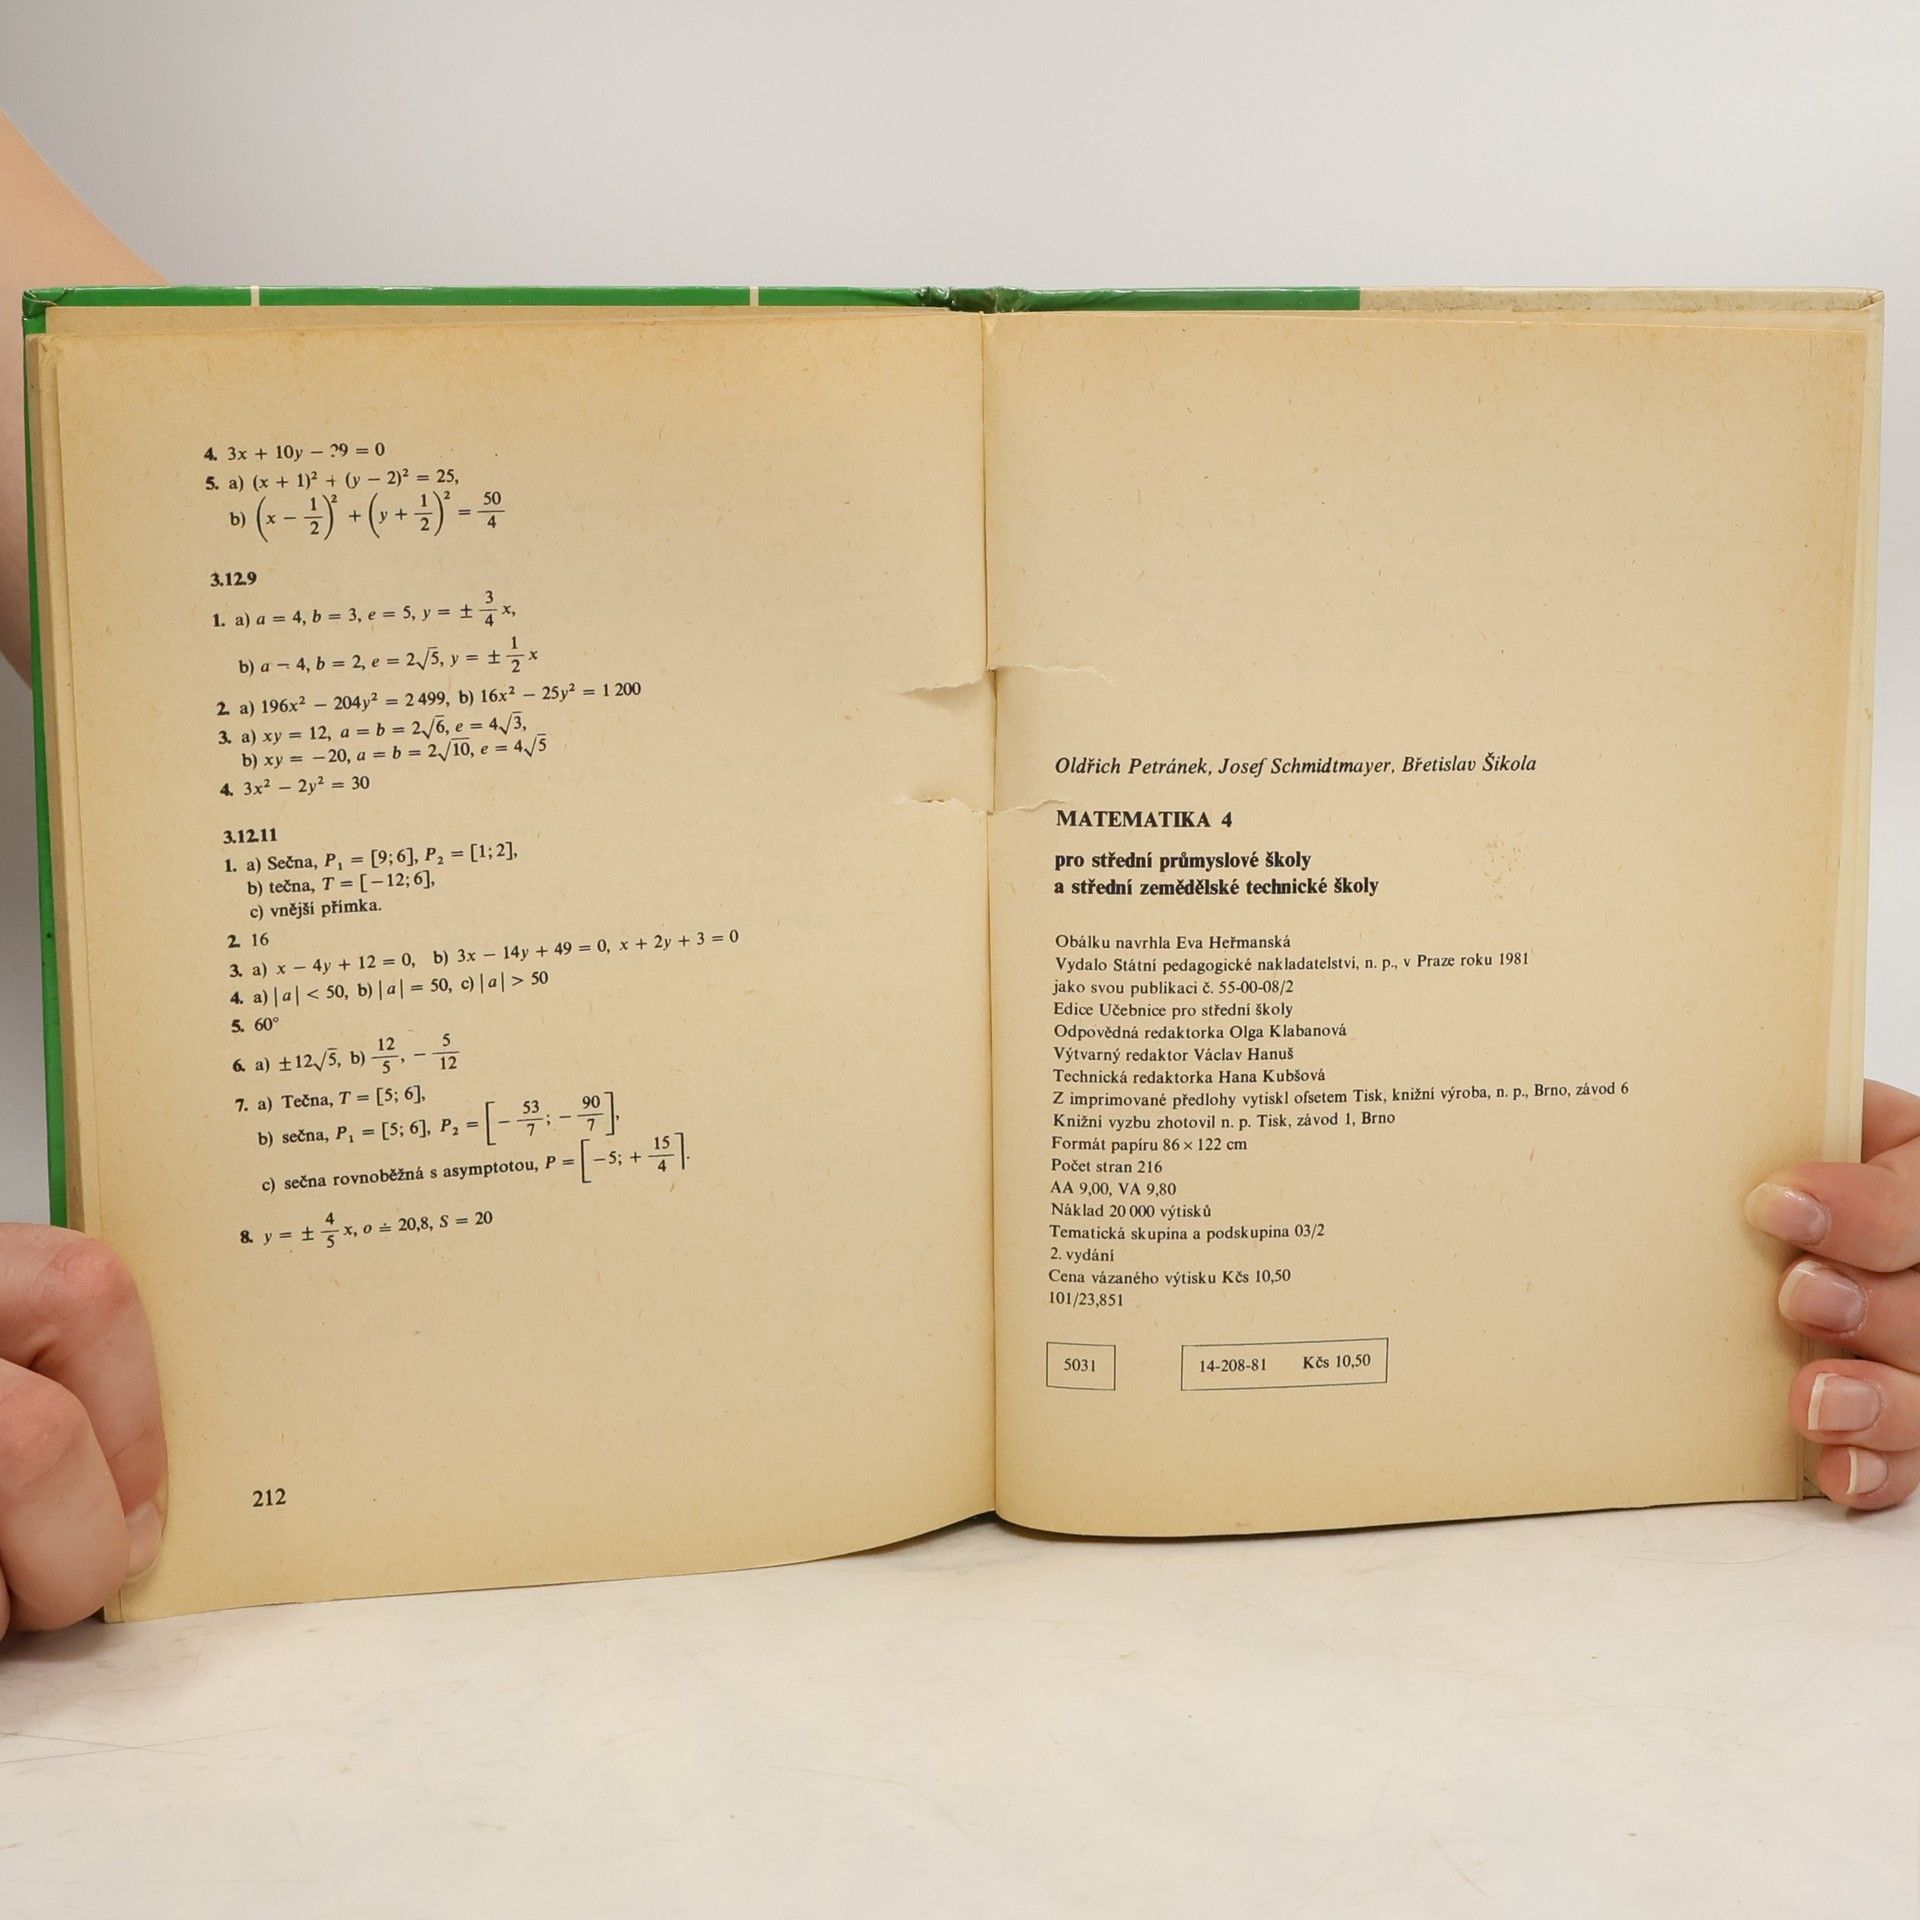 4. 3x + 10y − 29 = 0
5. a) (x + 1)² + (y − 2)² = 25,
b) (x − 1/2)² + (y + 1/2)² = 50/4
3.12.9
1. a) a = 4, b = 3, e = 5, y = ± 3/4 x,
b) a = 4, b = 2, e = 2√5, y = ± 1/2 x
2. a) 196x² − 204y² = 2 499, b) 16x² − 25y² = 1 200
3. a) xy = 12, a = b = 2√6, e = 4√3,
b) xy = −20, a = b = 2√10, e = 4√5
4. 3x² − 2y² = 30
3.12.11
1. a) Sečna, P₁ = [9; 6], P₂ = [1; 2],
b) tečna, T = [−12; 6],
c) vnější přímka.
2. 16
3. a) x − 4y + 12 = 0, b) 3x − 14y + 49 = 0, x + 2y + 3 = 0
4. a) |a| < 50, b) |a| = 50, c) |a| > 50
5. 60°
6. a) ±12√5, b) 12/5, − 5/12
7. a) Tečna, T = [5; 6],
b) sečna, P₁ = [5; 6], P₂ = [− 53/7; − 90/7],
c) sečna rovnoběžná s asymptotou, P = [−5; + 15/4].
8. y = ± 4/5 x, o ≐ 20,8, S = 20
212
Oldřich Petránek, Josef Schmidtmayer, Břetislav Šikola
MATEMATIKA 4
pro střední průmyslové školy
a střední zemědělské technické školy
Obálku navrhla Eva Heřmanská
Vydalo Státní pedagogické nakladatelství, n. p., v Praze roku 1981
jako svou publikaci č. 55-00-08/2
Edice Učebnice pro střední školy
Odpovědná redaktorka Olga Klabanová
Výtvarný redaktor Václav Hanuš
Technická redaktorka Hana Kubšová
Z imprimované předlohy vytiskl ofsetem Tisk, knižní výroba, n. p., Brno, závod 6
Knižní vyzbu zhotovil n. p. Tisk, závod 1, Brno
Formát papíru 86 × 122 cm
Počet stran 216
AA 9,00, VA 9,80
Náklad 20 000 výtisků
Tematická skupina a podskupina 03/2
2. vydání
Cena vázaného výtisku Kčs 10,50
101/23,851
5031
14-208-81 Kčs 10,50